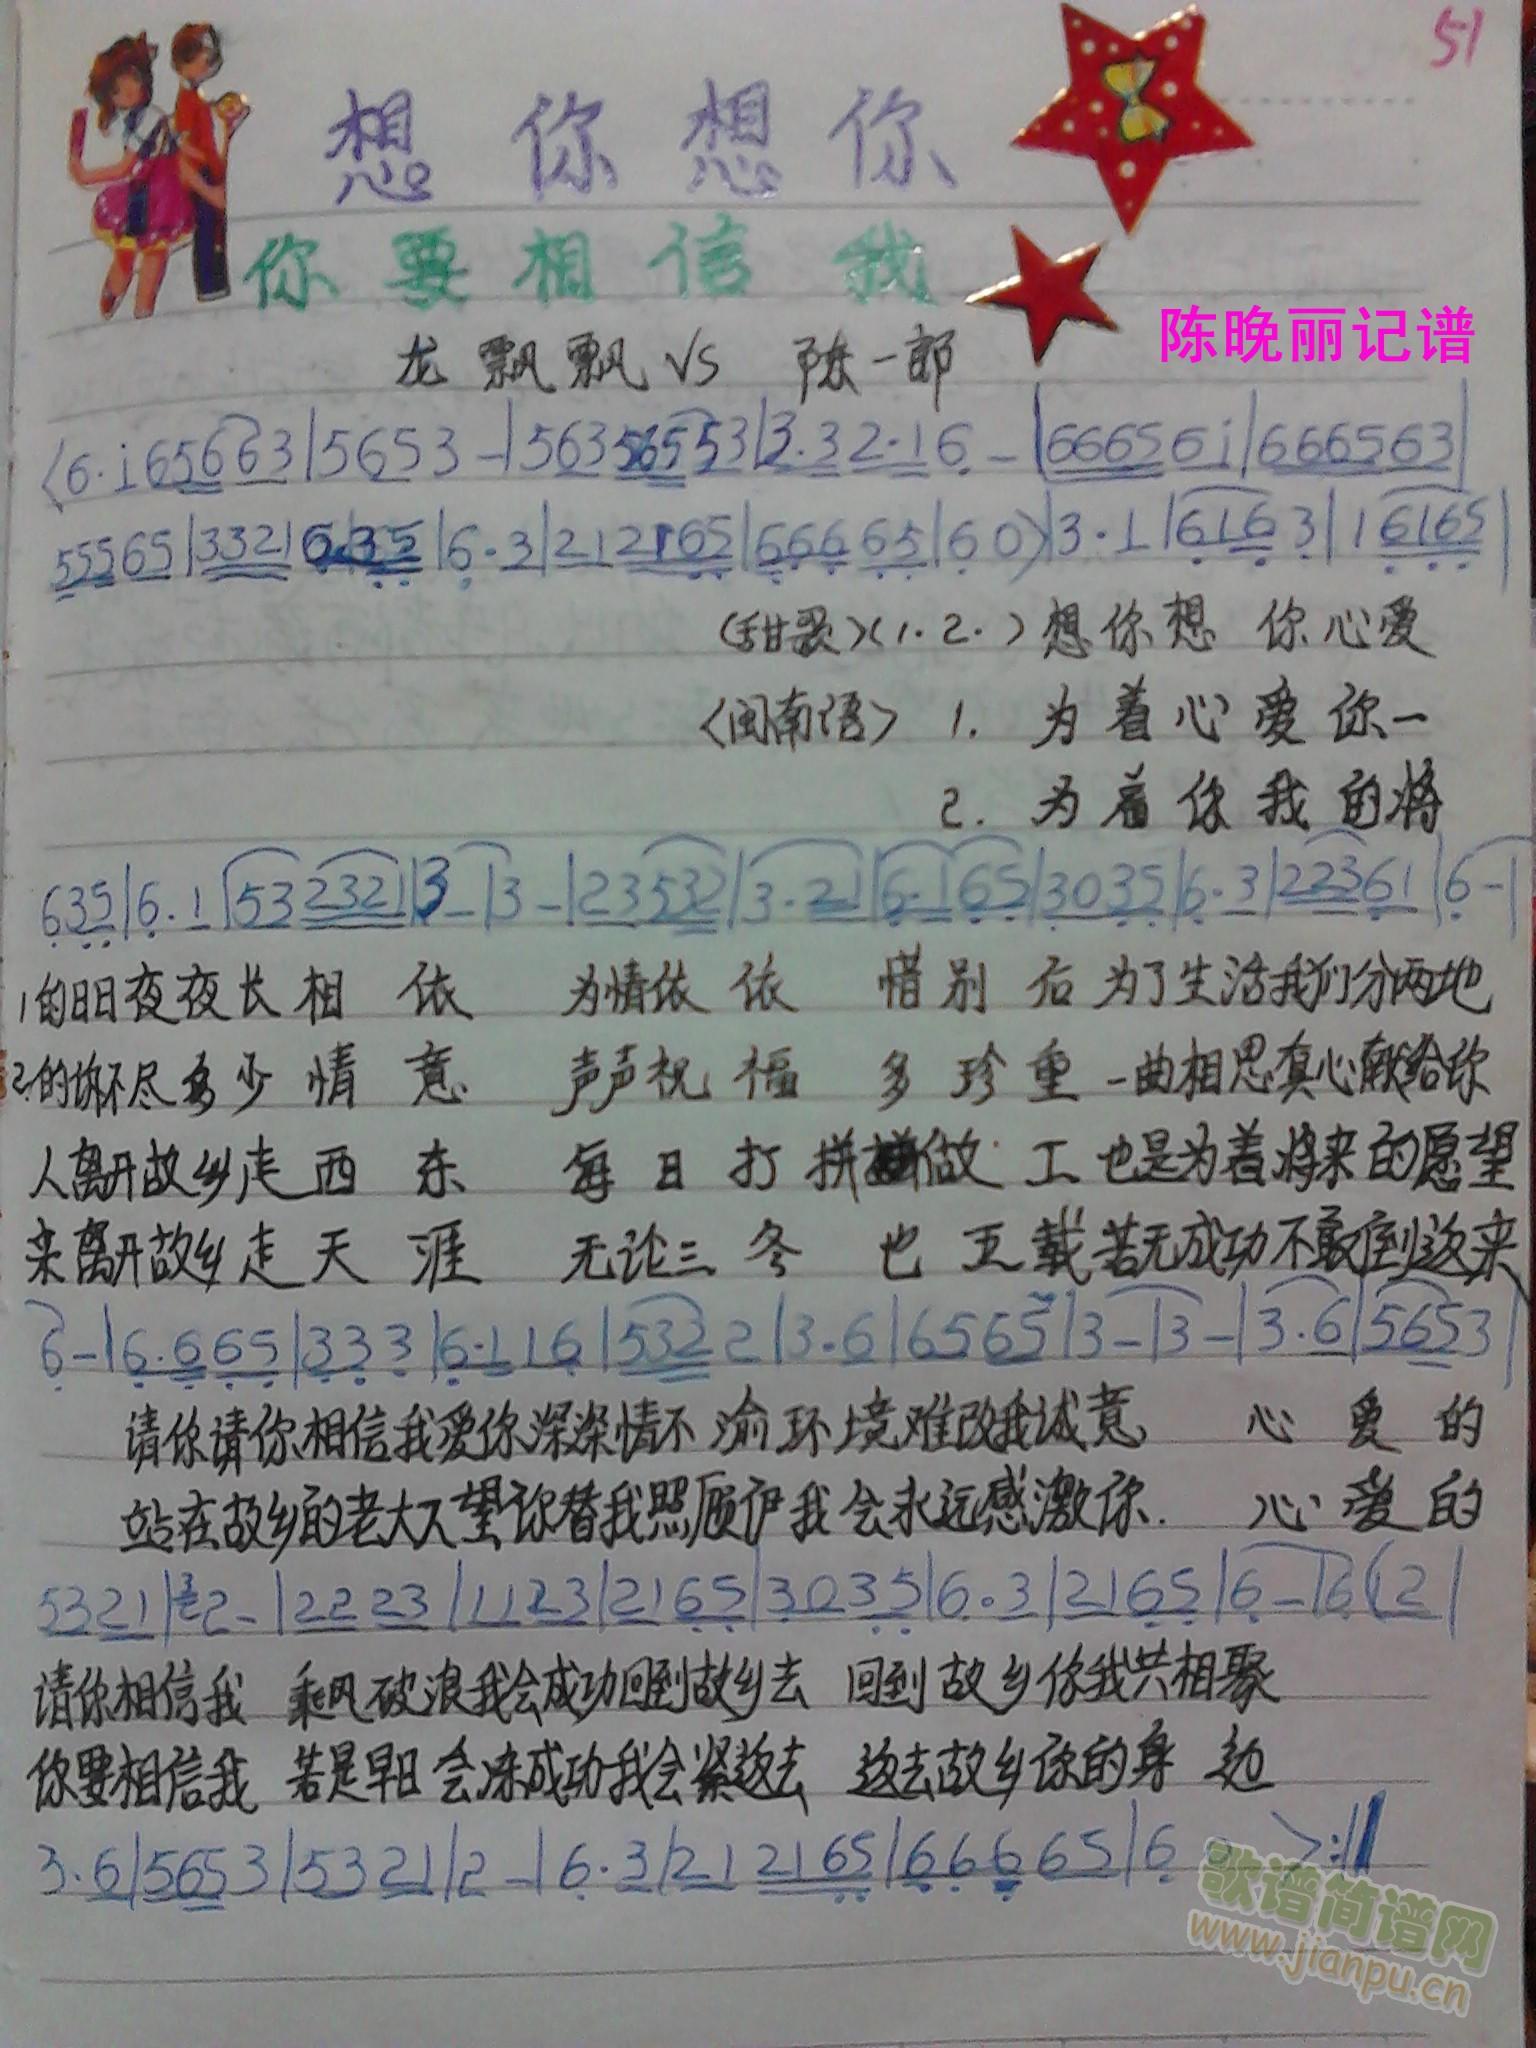 51
想你想你
你要相信我
陈晚丽记谱
龙飘飘 VS 陈一郎
(6·i65663|5653-|56356553|3·32·16-|66656i|666563|
55565|3321635|6·3|212165|66665|60)|3·1|6163|16165|
(甜歌)(1.2.)想你想你心爱
〈闽南语〉1.为着心爱你一
2.为着你我的将
635|6·1|532321|3-|3-|23532|3·21|6·165|3035|6·3|22361|6-|
1的日日夜夜长相依 为情依依惜别后为了生活我们分两地
2.的不尽多少情意 声声祝福多珍重一曲相思真心献给你
人离开故乡走西东 每日打拼做工也是为着将来的愿望
来离开故乡走天涯 无论三冬也五载若无成功不敢倒返来
6-|6·665|333|6·116|5322|3·6|6565|3-|3-|3·6|5653|
请你请你相信我爱你深深情不渝环境难改我诚意 心爱的
站在故乡的老大人望你替我照顾伊我会永远感激你. 心爱的
5321|2-|2223|1123|2165|3035|6·3|2165|6-|6(12|
请你相信我 乘风破浪我会成功回到故乡去 回到故乡你我共相聚
你要相信我 若是早日会冻成功我会紧返去 返去故乡你的身边
3·6|5653|5321|2-|6·3|212165|66665|6->:||
歌谱简谱网
www.jianpu.cn